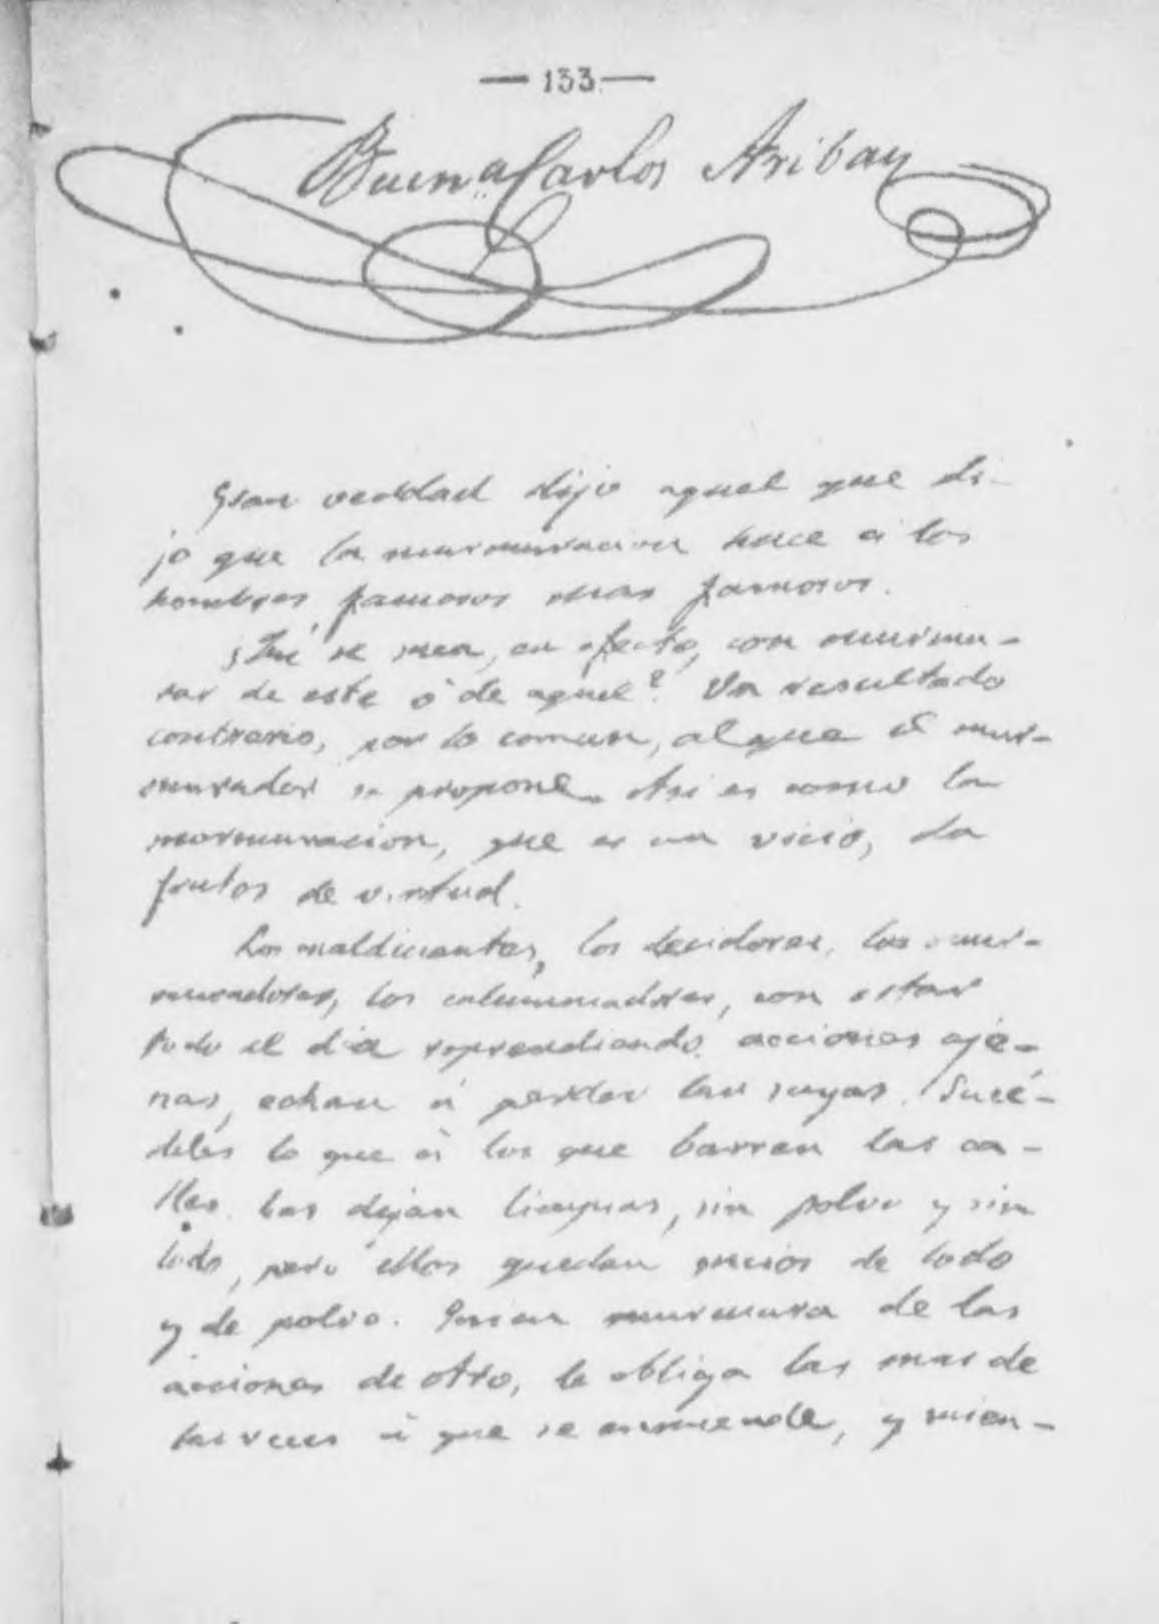 — 133 —
Buena Carlos Aribau
Gran verdad dijo aquel que di-
jo que la murmuracion hace á los
hombres famosos mas famosos.
¿Qué se saca, en efecto, con murmu-
rar de este ó de aquel? Un resultado
contrario, por lo comun, al que el mur-
murador se propone. Asi es como la
mormuracion, que es un vicio, da
frutos de virtud.
Los maldicientes, los decidores, los mur-
muradores, los calumniadores, con estar
todo el dia reprendiendo acciones aje-
nas, echan á perder las suyas. Sucé-
deles lo que á los que barren las ca-
lles. Las dejan limpias, sin polvo y sin
lodo, pero ellos quedan sucios de lodo
y de polvo. Quien murmura de las
acciones de otro, le obliga las mas de
las veces á que se enmiende, y mien-